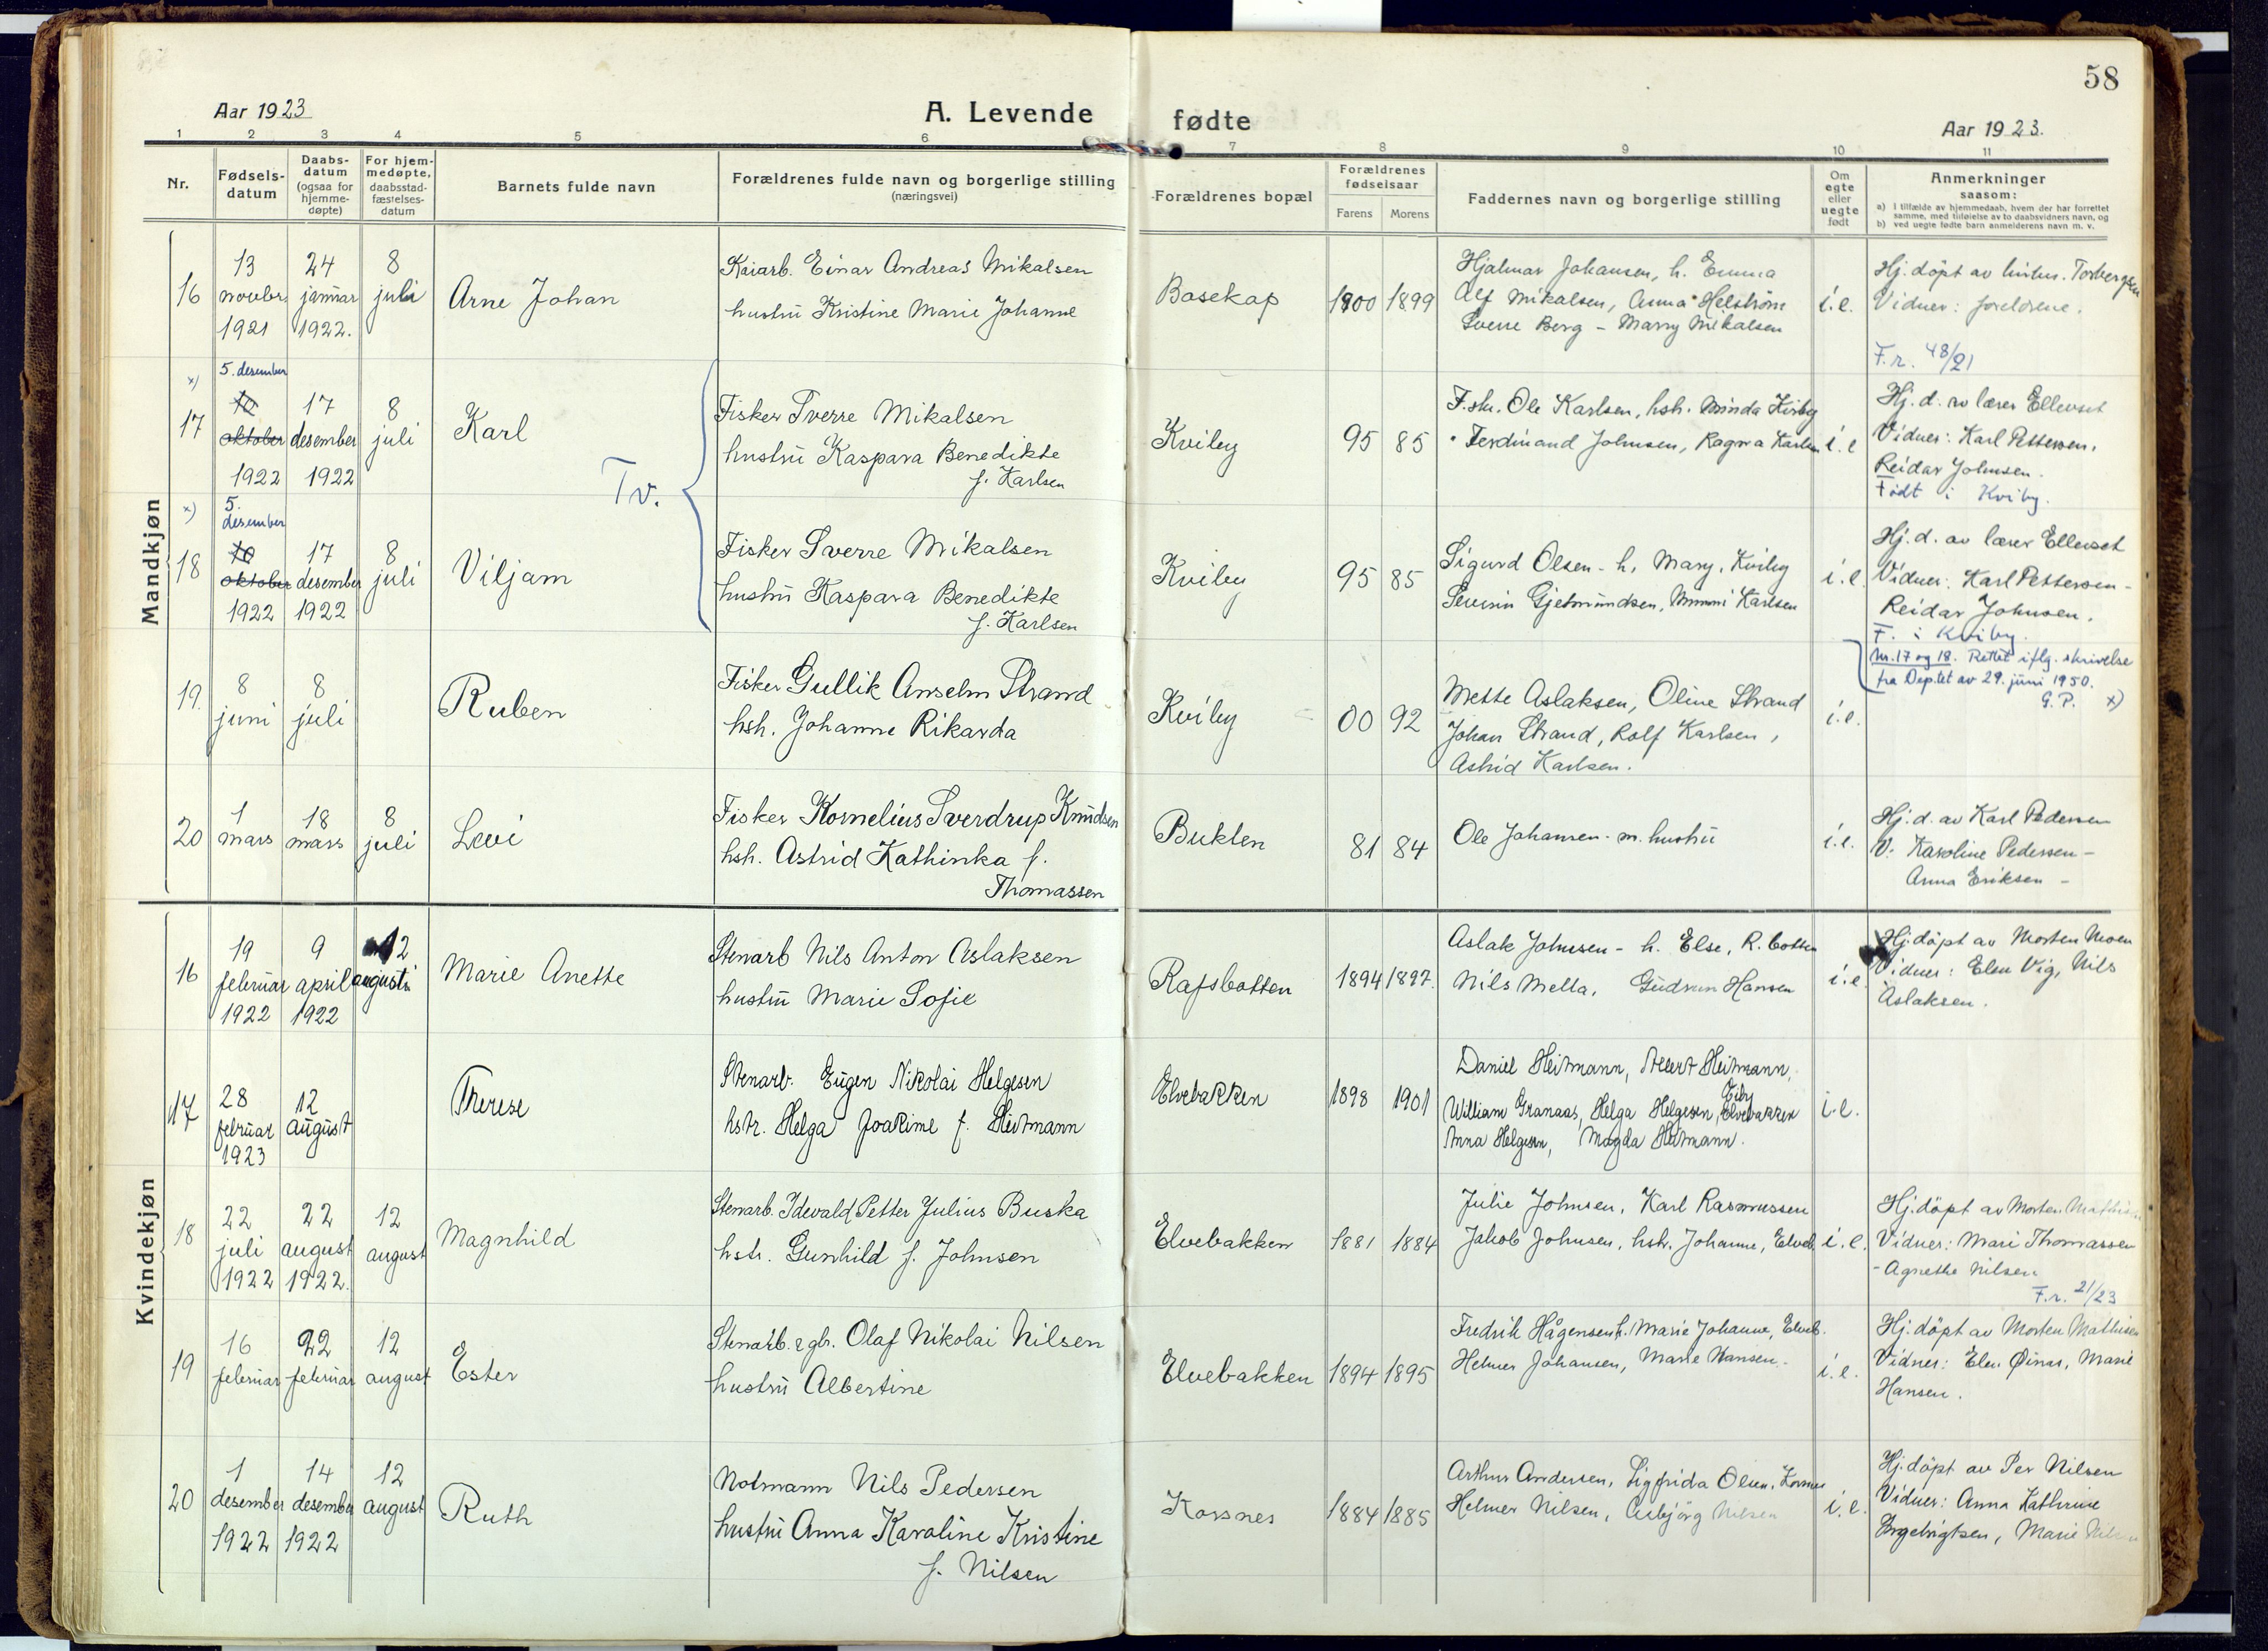 58
Aar 1923
A. Levende fødte
Aar 1923.
1 2 3 4 5 6 7 8 9 10 11
Nr.
Fødsels-
datum
Daabs-
datum
(ogsaa for
hjemme-
døpte)
For hjem-
medøpte,
daabsstad-
fæstelses-
datum
Barnets fulde navn
Forældrenes fulde navn og borgerlige stilling
(næringsvei)
Forældrenes bopæl
Forældrenes
fødselsaar
Farens Morens
Faddernes navn og borgerlige stilling
Om
egte
eller
uegte
født
Anmerkninger
saasom:
a) I tilfælde av hjemmedaab, hvem der har forrettet
samme, med tilføielse av to daabsvidners navn, og
b) ved uegte fødte barn anmelderens navn m. v.
Mandkjøn
16
13
novbr.
1921
24
januar
1922.
8
juli
Arne Johan
Kaiarb. Einar Andreas Mikalsen
hustrü Kristine Marie Johanne
Bosekop
1900 1899
Hjalmar Johansen, h. Emma
Alf Mikalsen, Anna Helström
Sverre Berg - Marry Mikalsen
i.e.
Hj. döpt av Torbergsen
Vidner: foreldrene.
F.r. 48/21
x)
17
5. desember
10
oktober
1922
17
desember
1922
8
juli
Karl
Tv.
Fisker Sverre Mikalsen
hustrü Kaspara Benedikte
f. Karlsen
Kviby
95 85
F.sk. Ole Karlsen, hsh. Minda Kviby
Ferdinand Johnsen, Ragna Karlsen
i.e
Hj. d. av lærer Ellevset
Vidner: Karl Pettersen,
Reidar Johnsen.
Født i Kviby.
x)
18
5.
desember
10
oktober
1922
17
desember
1922
8
juli
Viljam
Fisker Sverre Mikalsen
hustrü Kaspara Benedikte
f. Karlsen
Kviby
95 85
Sigurd Olsen - h. Mary, Kviby
Severin Gjetmundsen, Mimmi Karlsen
i.e.
Hj. d. av lærer Ellevset
Vidner: Karl Pettersen -
Reidar Johnsen.
F. i Kviby.
Nr. 17 og 18. Rettet iflg. skrivelse
fra Dep.tet av 29. juni 1950.
G.P. x)
19.
8
juni
8
juli
Ruben
Fisker Gullik Anselm Strand
hsh. Johanne Rikarda
Kviby
00 92
Mette Aslaksen, Oline Strand
Johan Strand, Rolf Karlsen,
Astrid Karlsen.
i.e.
20
1
mars
18
mars
8
juli
Levi
Fisker Kornelius Sverdrup Knudsen
hsh. Astrid Kathinka f.
Thomassen
Bukten
81 84
Ole Johansen - m. hustrü
i.e.
Hj. d. av Karl Pedersen
V: Karoline Pedersen -
Anna Eriksen -
Kvindekjøn
16
19
februar
1922
9
april
1922
12
augusti
Marie Anette
Stenarb Nils Anton Aslaksen
hustrü Marie Sofie
Rafsbotten
1894 1897.
Aslak Johnsen - h. Else, R. botten
Nils Mella, Güdrun Hansen
i.e.
Hj. döpt av Morten Moen
Vidner: Elen Vig, Nils
Aslaksen.
17
28
februar
1923
12
august
Therese
Stenarb. Eugen Nikolai Helgesen
hstr. Helga Joakime f. Heitmann
Elvebakken
1898 1901
Daniel Heitmann, Albert Heitmann,
Eiby
William Granaas, Helga Helgesen, Elvebakken
Anna Helgesen, Magda Heitmann.
i.e.
18
22
juli
1922
22
august
1922.
12
august
Magnhild
Stenarb. Idevald Petter Julius Buska
hstr. Gunhild f. Johnsen
Elvebakken
1881 1884
Julie Johnsen, Karl Rasmussen
Jakob Johnsen, hstr. Johanne, Elveb.
i.e.
Hj. döpt av Morten Mathisen
Vidner: Mari Thomassen
- Agnethe Nilsen
F.r. 21/23
19
16
februar
22
februar
12
august
Ester
Stenarb. & gb. Olaf Nikolai Nilsen
hustrü Albertine
Elvebakken
1894 1895
Fredrik Hågensen h. Marie Johanne, Elveb.
Helmer Johansen, Marie Hansen -
i.e.
Hj. döpt av Morten Mathisen
Vidner: Elen Øinas, Marie
Hansen.
20
1
desember
1922
14
desember
1922
12
august
Ruth
Notmann Nils Pedersen
hustrü Anna Karoline Kristine
f. Nilsen
Korsnes
1884 1885
Arthur Andersen, Sigfrida Olsen, Korsnes
Helmer Nilsen, Nilsen
i.e.
Hj. döpt av Per Nilsen
Vidner: Anna Kathrine
Ingebrigtsen, Marie Nilsen